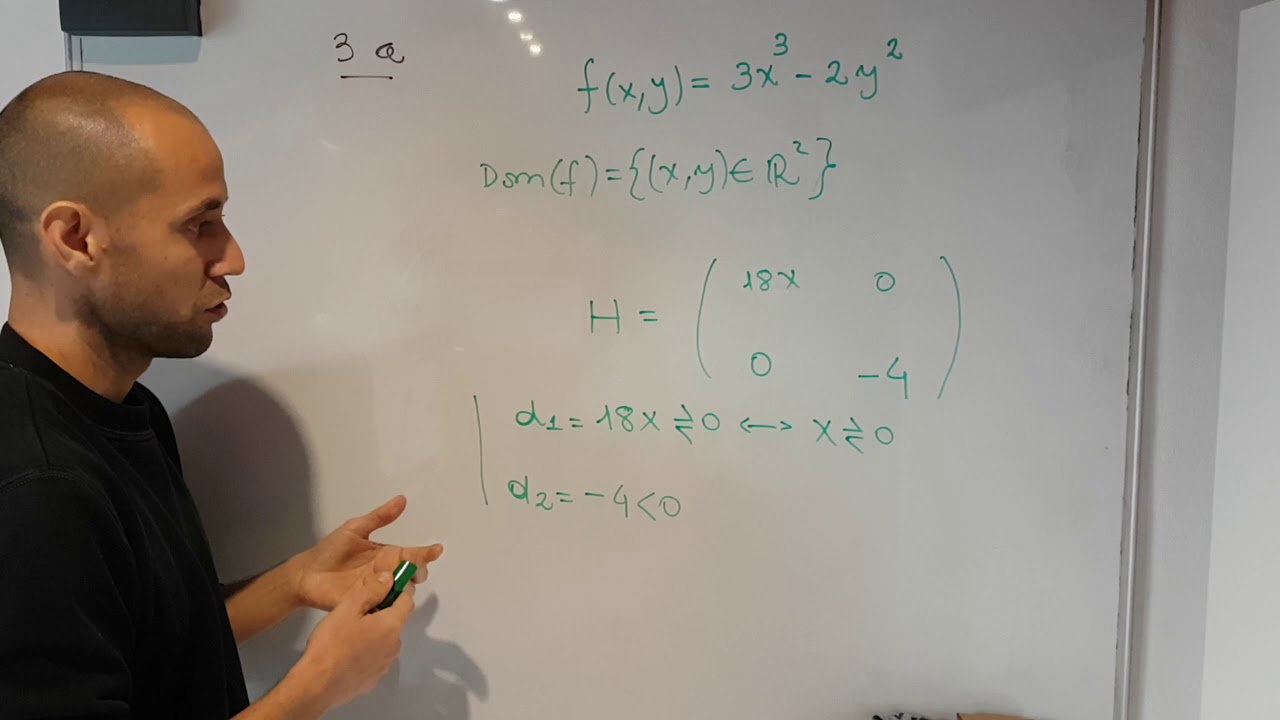 3 a
f(x,y) = 3x³ - 2y²
Dom(f) = {(x,y) ∈ ℝ²}
H = ( 18x 0
0 -4 )
d₁ = 18x ⋛ 0 ⟷ x ⋛ 0
d₂ = -4 < 0